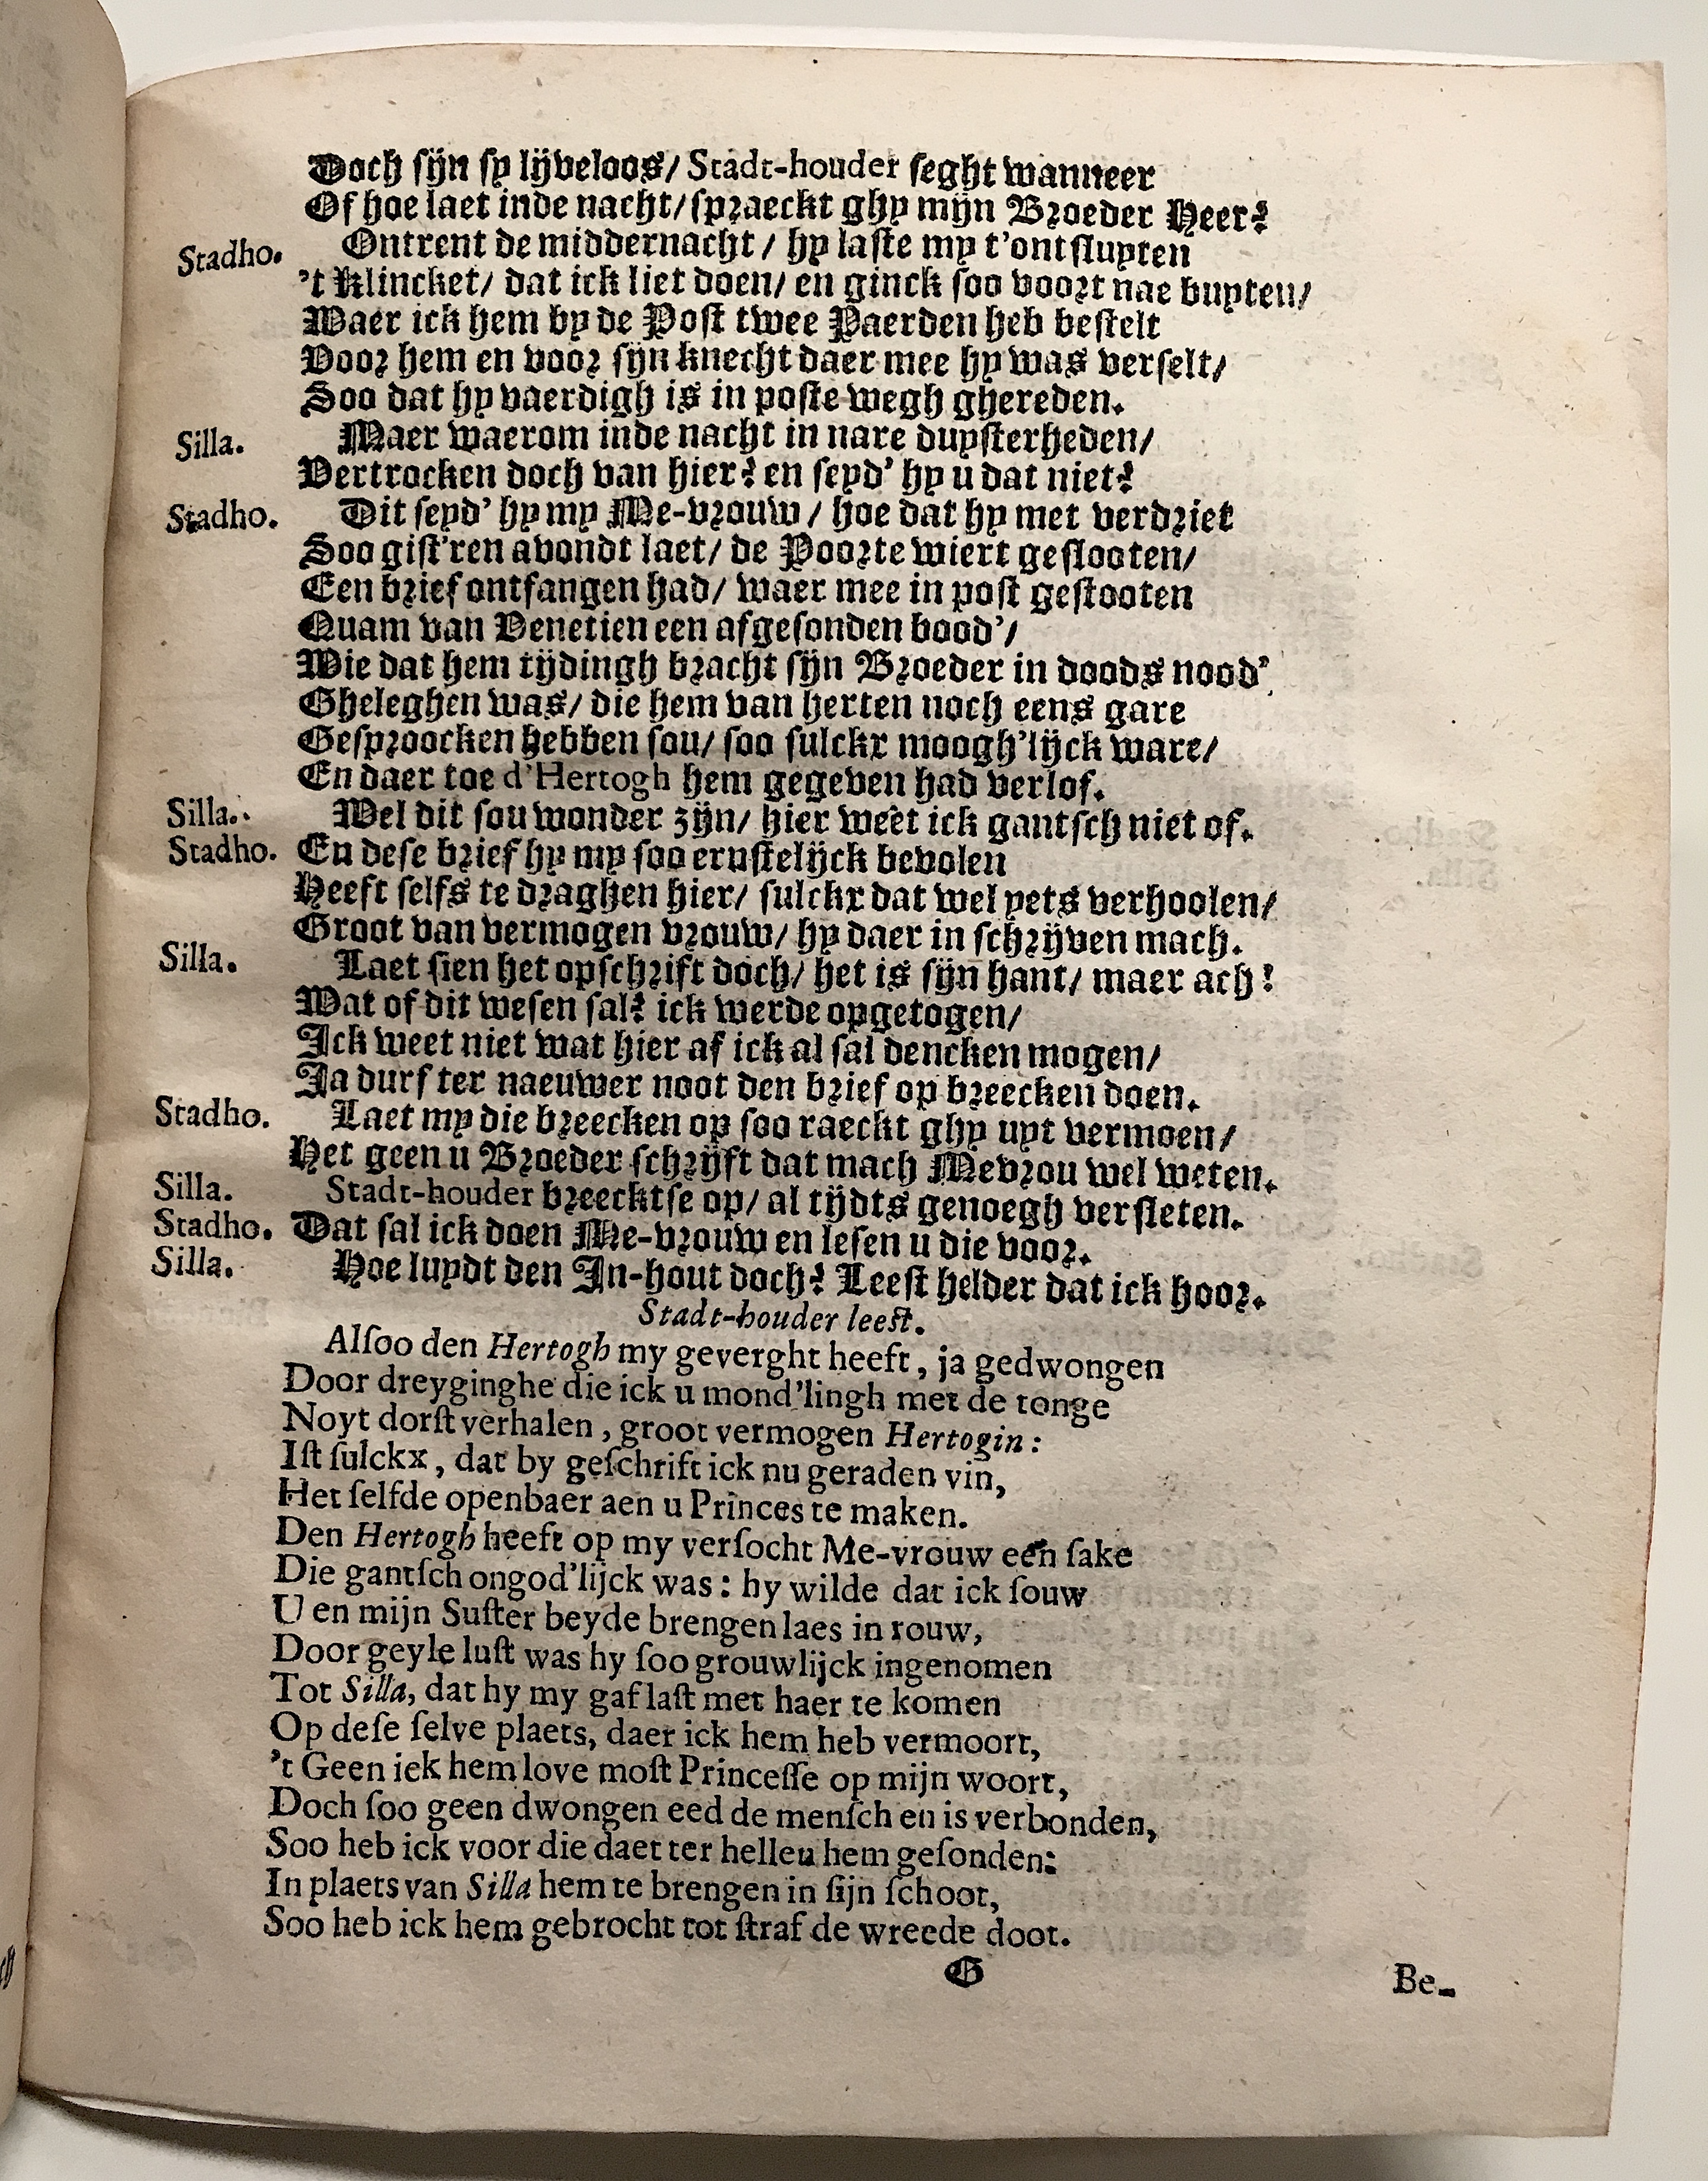 Doch sijn sy lijveloos/ Stadt-houder seght wanneer
Of hoe laet inde nacht/ spraeckt ghy mijn Broeder Heer?
Stadho. Ontrent de middernacht / hy laste my t'ontsluyten
't Klincket/ dat ick liet doen/ en ginck soo voort nae buyten/
Waer ick hem by de Post twee Paerden heb bestelt
Voor hem en voor sijn knecht daer mee hy was verselt/
Soo dat hy vaerdigh is in poste wegh ghereden.
Silla. Maer waerom inde nacht in nare duysterheden/
Vertrocken doch van hier? en seyd' hy u dat niet?
Stadho. Dit seyd' hy my Me-vrouw / hoe dat hy met verdriet
Soo gist'ren avondt laet/ de Poorte wiert geslooten/
Een brief ontfangen had/ waer mee in post gestooten
Quam van Venetien een afgesonden bood'/
Wie dat hem tijdingh bracht sijn Broeder in doods nood'
Gheleghen was/ die hem van herten noch eens gare
Gesproocken hebben sou/ soo sulckx moogh'lijck ware/
En daer toe d'Hertogh hem gegeven had verlof.
Silla. Wel dit sou wonder zijn/ hier weet ick gantsch niet of.
Stadho. En dese brief hy my soo ernstelijck bevolen
Heeft selfs te draghen hier/ sulckx dat wel yets verhoolen/
Groot van vermogen vrouw/ hy daer in schrijven mach.
Silla. Laet sien het opschrift doch/ het is sijn hant/ maer ach!
Wat of dit wesen sal? ick werde opgetogen/
Ick weet niet wat hier af ick al sal dencken mogen/
Ja durf ter naeuwer noot den brief op breecken doen.
Stadho. Laet my die breecken op soo raeckt ghy uyt vermoen/
Het geen u Broeder schrijft dat mach Mevrou wel weten.
Silla. Stadt-houder breecktse op/ al tijdts genoegh versleten.
Stadho. Dat sal ick doen Me-vrouw en lesen u die voor.
Silla. Hoe luydt den In-hout doch? Leest helder dat ick hoor.
Stadt-houder leest.
Alsoo den Hertogh my geverght heeft, ja gedwongen
Door dreyginghe die ick u mond'lingh met de tonge
Noyt dorst verhalen, groot vermogen Hertogin:
Ist sulckx, dat by geschrift ick nu geraden vin,
Het selfde openbaer aen u Princes te maken.
Den Hertogh heeft op my versocht Me-vrouw een sake
Die gantsch ongod'lijck was: hy wilde dat ick souw
U en mijn Suster beyde brengen laes in rouw,
Door geyle lust was hy soo grouwlijck ingenomen
Tot Silla, dat hy my gaf last met haer te komen
Op dese selve plaets, daer ick hem heb vermoort,
't Geen iek hem love most Princesse op mijn woort,
Doch soo geen dwongen eed de mensch en is verbonden,
Soo heb ick voor die daet ter helleu hem gesonden:
In plaets van Silla hem te brengen in sijn schoot,
Soo heb ick hem gebrocht tot straf de wreede doot.
G Be-